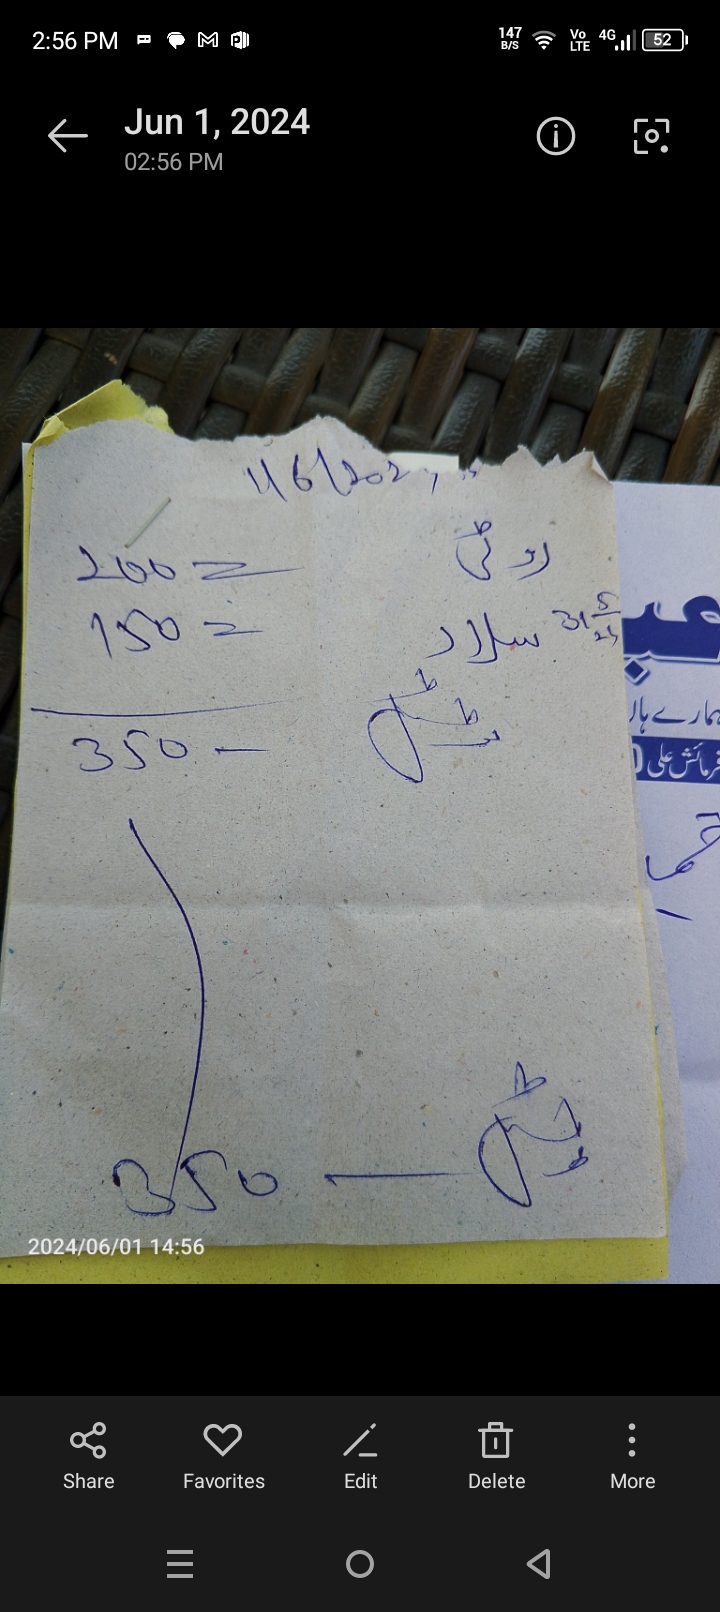 2:56 PM 147 B/S Vo LTE 4G 52
Jun 1, 2024
02:56 PM
1/6/202
روٹی 200=
31 5/24 سلاد 150=
350-
ہمارے ہاں
فرمائش علی
350
2024/06/01 14:56
Share Favorites Edit Delete More